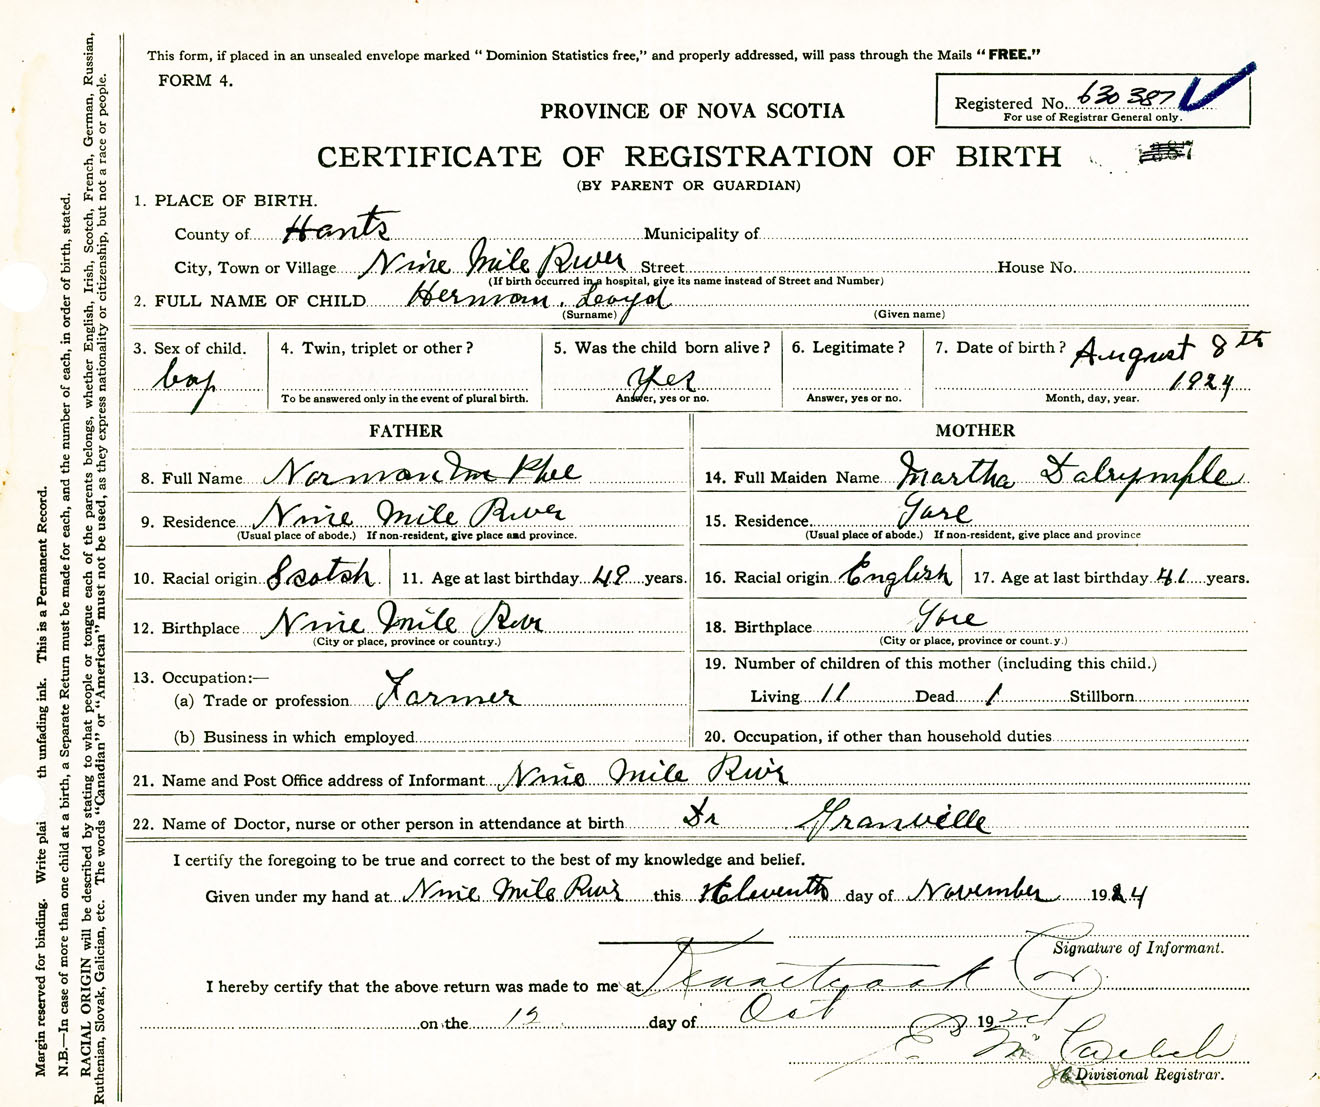 This form, if placed in an unsealed envelope marked " Dominion Statistics free," and properly addressed, will pass through the Mails "FREE."
FORM 4.
Registered No. 630 387
For use of Registrar General only.
PROVINCE OF NOVA SCOTIA
CERTIFICATE OF REGISTRATION OF BIRTH
(BY PARENT OR GUARDIAN)
1. PLACE OF BIRTH.
County of Hants Municipality of
City, Town or Village Nine Mile River Street House No.
(If birth occurred in a hospital, give its name instead of Street and Number)
2. FULL NAME OF CHILD Herman. Loyd
(Surname) (Given name)
3. Sex of child. 4. Twin, triplet or other? 5. Was the child born alive? 6. Legitimate? 7. Date of birth? August 8th
boy Yes 1924
To be answered only in the event of plural birth. Answer, yes or no. Answer, yes or no. Month, day, year.
FATHER MOTHER
8. Full Name Norman Mc Phee 14. Full Maiden Name Martha Dalrymple
9. Residence Nine Mile River 15. Residence. Gore
(Usual place of abode.) If non-resident, give place and province. (Usual place of abode.) If non-resident, give place and province
10. Racial origin Scotsh 11. Age at last birthday 49 years. 16. Racial origin English 17. Age at last birthday 41 years.
12. Birthplace Nine Mile River 18. Birthplace Gore
(City or place, province or country.) (City or place, province or count.y.)
13. Occupation:— 19. Number of children of this mother (including this child.)
(a) Trade or profession Farmer Living 11 Dead 1 Stillborn
(b) Business in which employed 20. Occupation, if other than household duties
21. Name and Post Office address of Informant Nine Mile River
22. Name of Doctor, nurse or other person in attendance at birth Dr Granville
I certify the foregoing to be true and correct to the best of my knowledge and belief.
Given under my hand at Nine Mile River this Eleventh day of November 1924
Signature of Informant.
I hereby certify that the above return was made to me at Kennetcook
on the 12 day of Oct 1924
E Mc
Divisional Registrar.
Margin reserved for binding. Write plai th unfading ink. This is a Permanent Record.
N.B.—In case of more than one child at a birth, a Separate Return must be made for each, and the number of each, in order of birth, stated.
RACIAL ORIGIN will be described by stating to what people or tongue each of the parents belongs, whether English, Irish, Scotch, French, German, Russian,
Ruthenian, Slovak, Galician, etc. The words "Canadian" or "American" must not be used, as they express nationality or citizenship, but not a race or people.